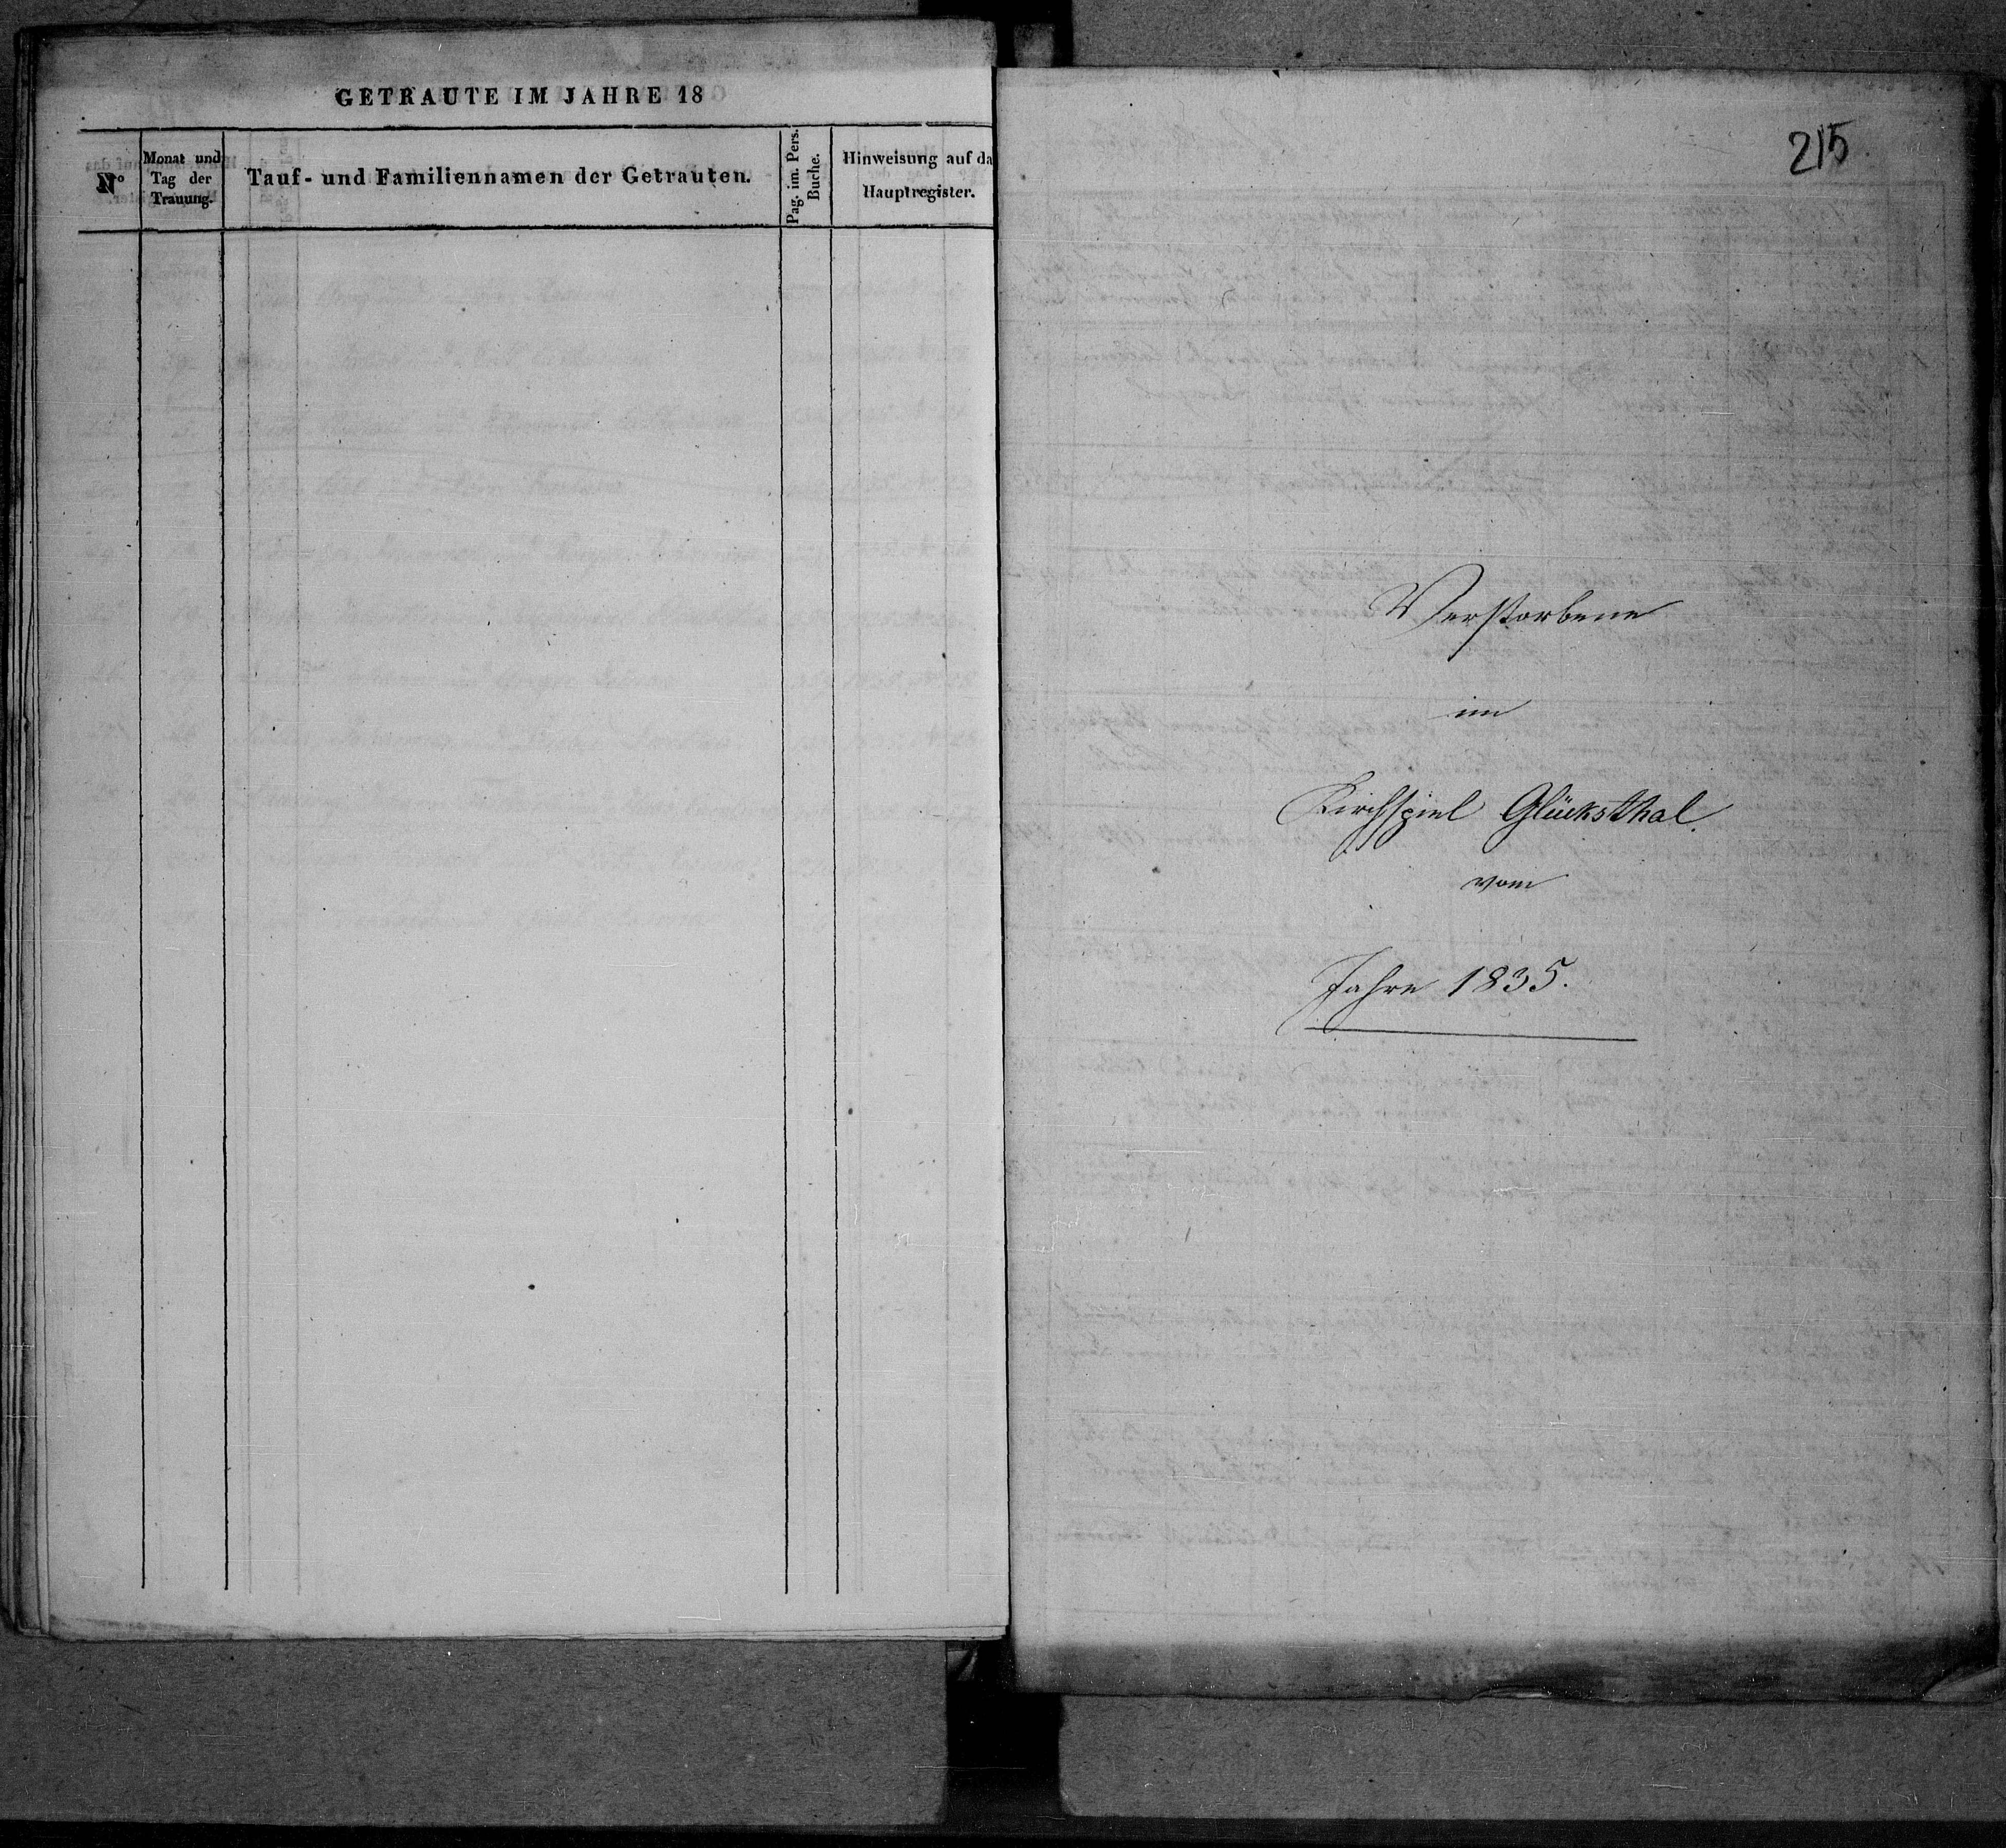 GETRAUTE IM JAHRE 18
Nº
Monat und
Tag der
Trauung.
Tauf- und Familiennamen der Getrauten.
Pag. im. Pers.
Buche.
Hinweisung auf da
Hauptregister.
215
Verstorbene
im
Kirchspiel Glücksthal.
vom
Jahre 1835.